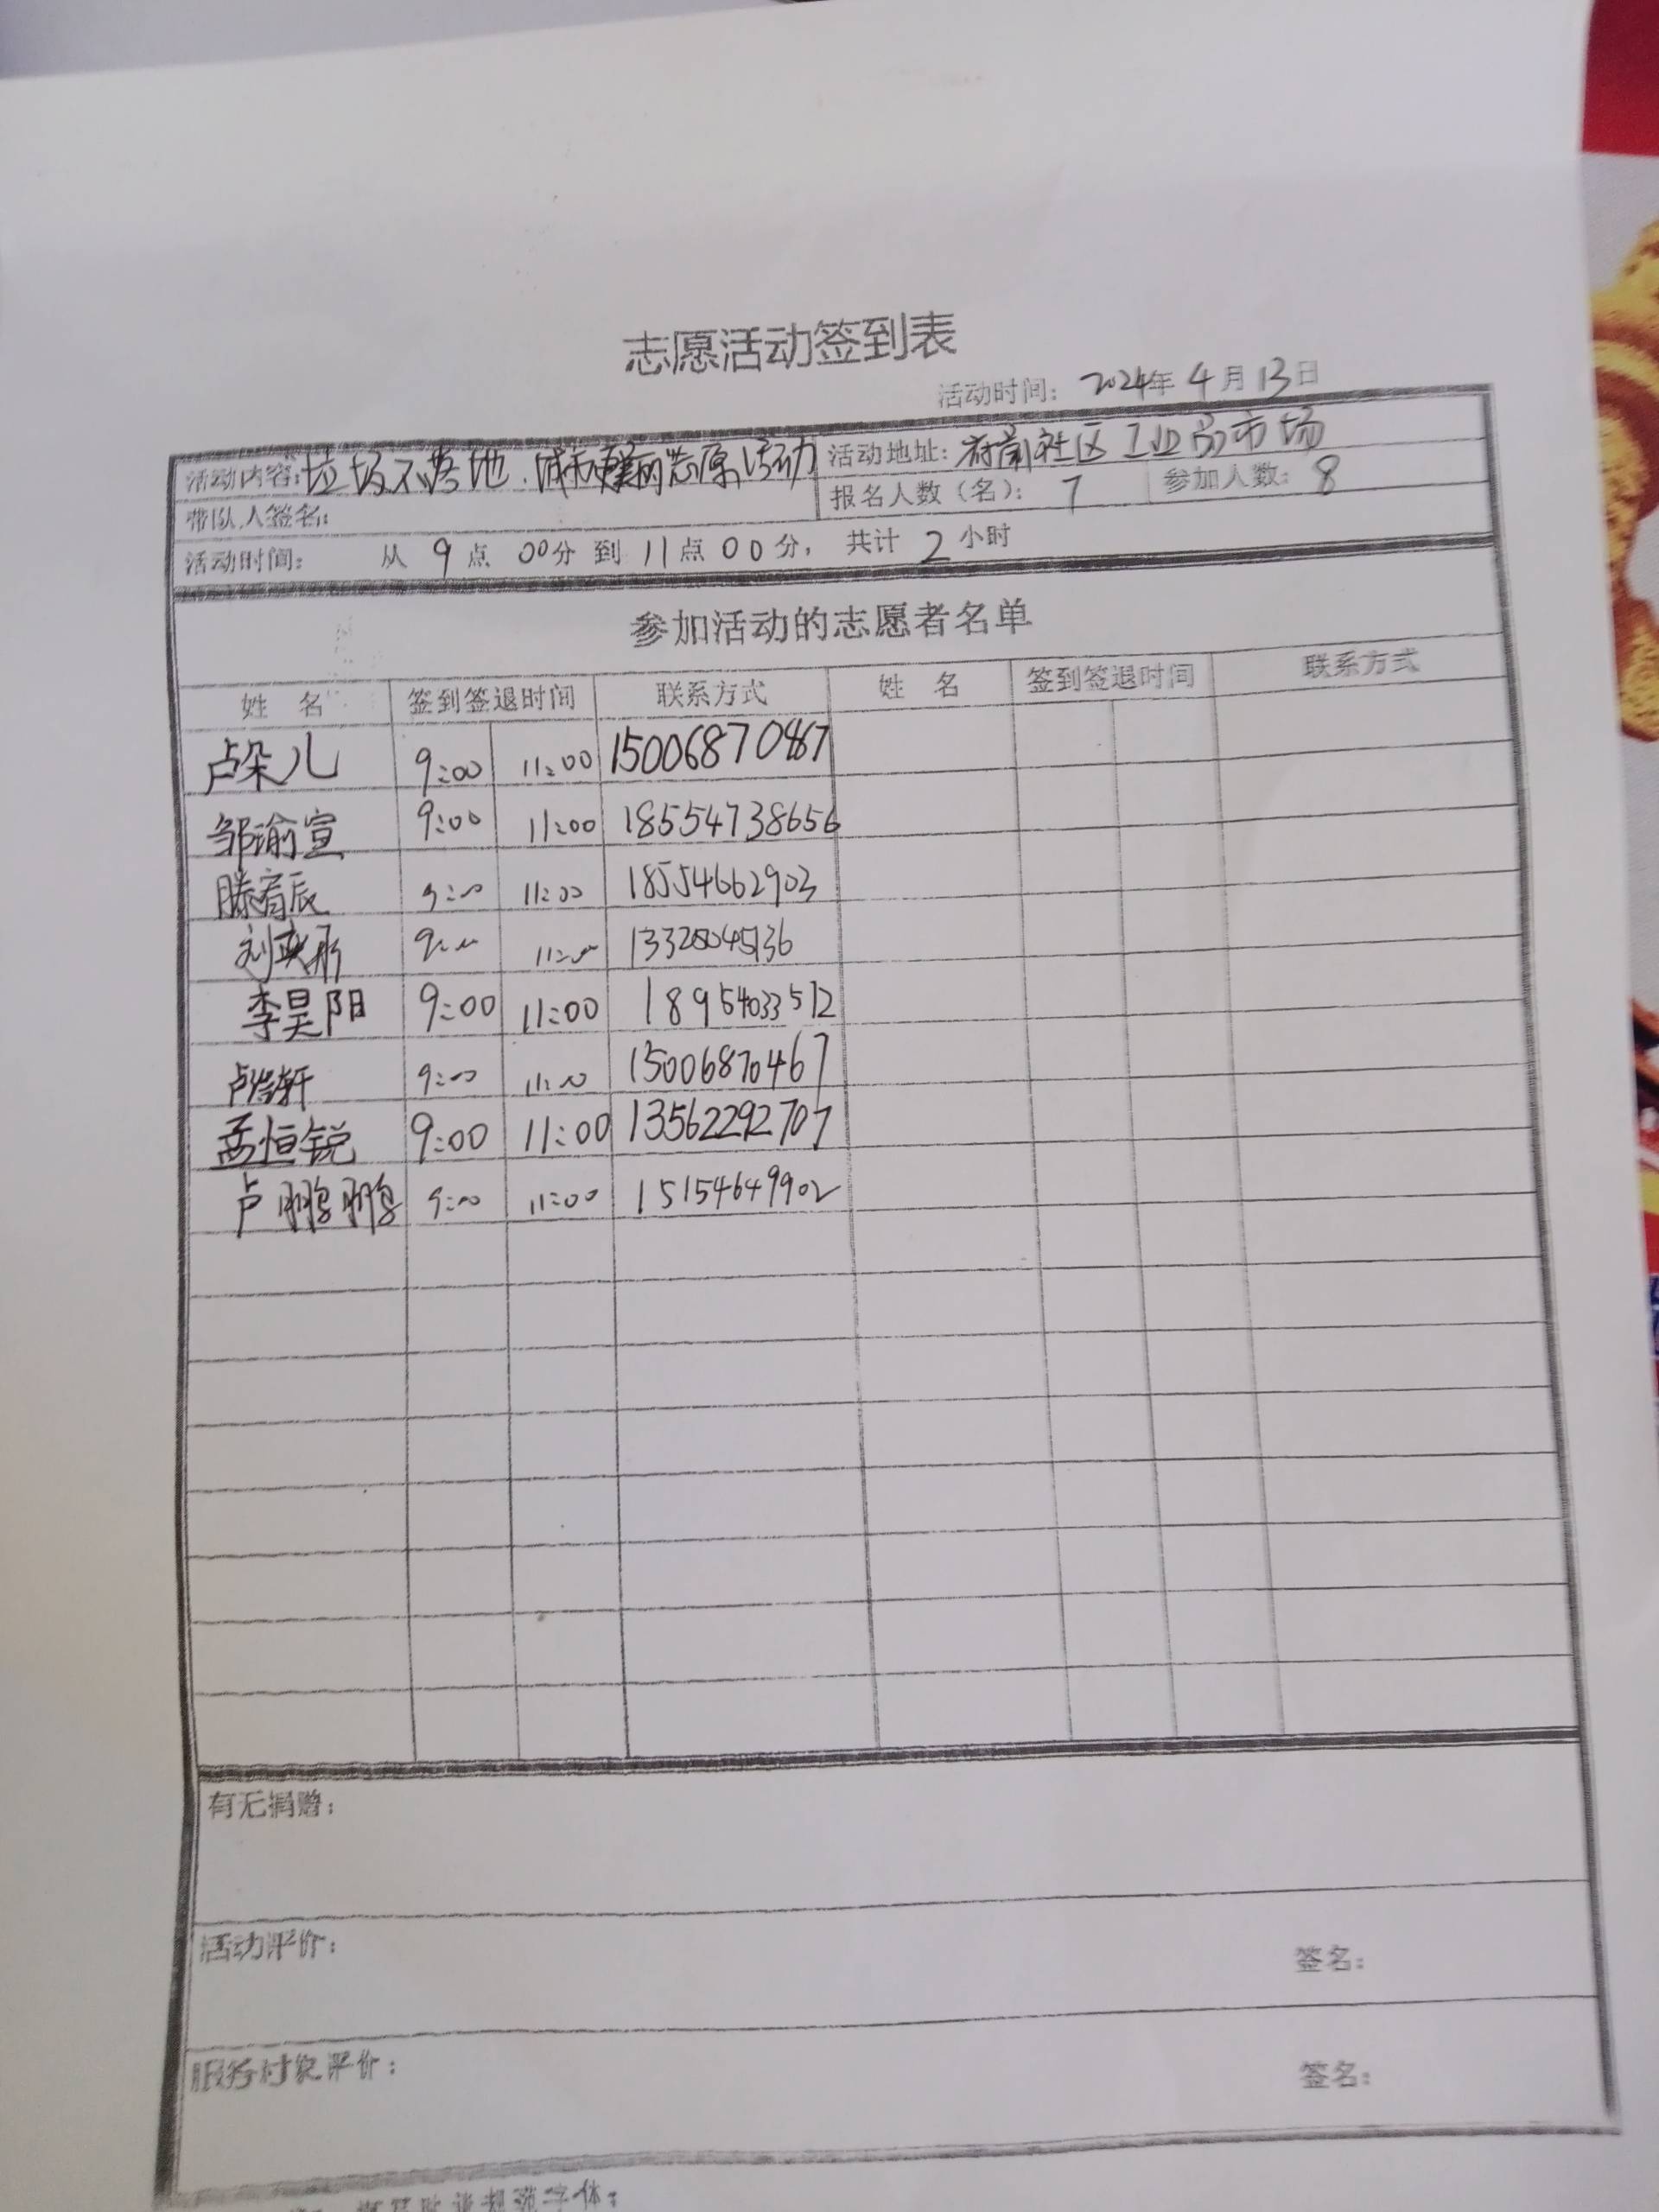 志愿活动签到表
活动时间: 2024年 4月 13日
活动内容: 垃圾不落地.城市更美的志愿活动 活动地址: 社区工业品市场
带队人签名: 报名人数(名): 7 参加人数: 8
活动时间: 从 9 点 00分 到 11点 00分, 共计 2 小时
参加活动的志愿者名单
姓 名 签到签退时间 联系方式 姓 名 签到签退时间 联系方式
卢朵儿 9:00 11:00
邹瑜宣 9:00 11:00 18554738656
滕宥辰 9:00 11:00 18554662903
9:00 11:00
李昊阳 9:00 11:00 18954033512
9:00 11:00 15006870467
孟恒锐 9:00 11:00 13562292707
卢鹏鹏 9:00 11:00 15154649902
有无捐赠:
活动评价: 签名:
服务对象评价: 签名: